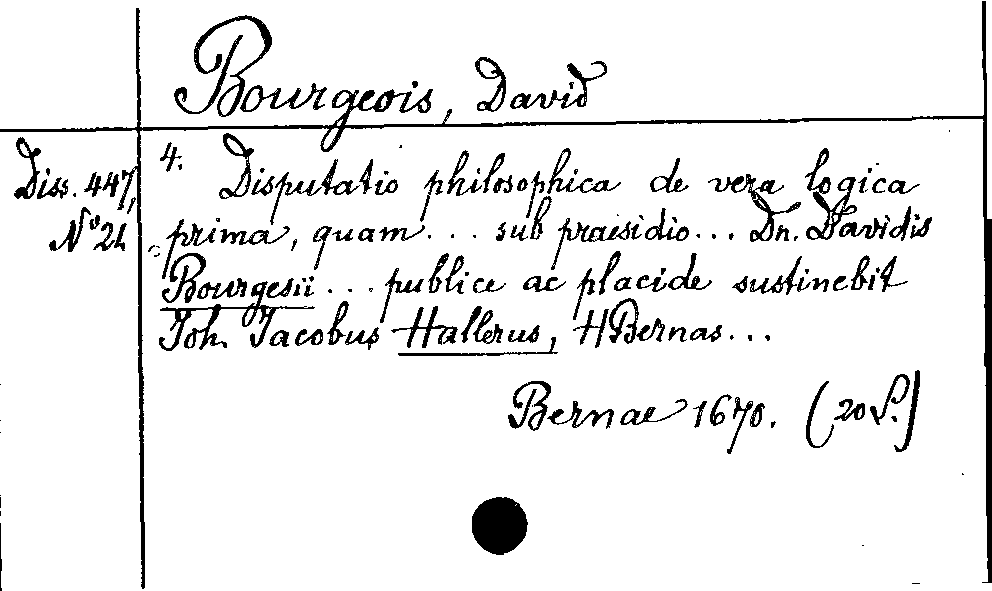 Bourgeois, David
Diss. 447,
No 21
4. Disputatio philosophica de vera logica
prima, quam ... sub praesidio ... Dn. Davidis
Bourgesii ... publice ac placide sustinebit
Joh. Jacobus Hallerus, HBernas ...
Bernae 1670. (20 S.)